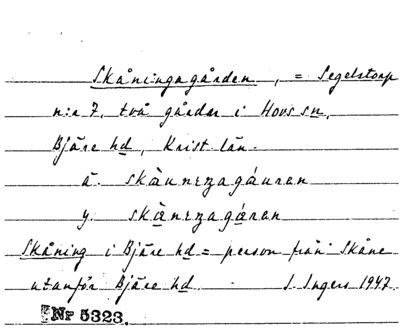 Skåningagården, = Segelstorp
n:r 7, två gårdar i Hovs sn,
Bjäre hd, Krist. län.
ä. skàunɪŋagáuran
y. skànɪŋagáran
Skåning i Bjäre hd = person från Skåne
utanför Bjäre hd. I. Ingers 1947.
Nr 5323.